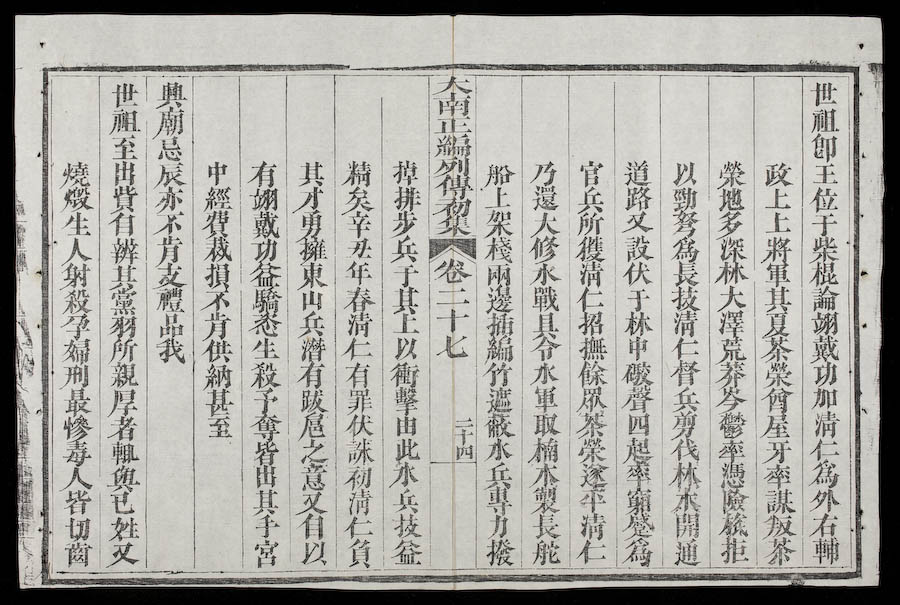 世祖即王位于柴棍論翊戴功加淸仁為外右輔
政上上將軍其夏茶榮酋屋牙率謀叛茶
榮地多深林大澤荒莽岑鬱率憑險旅拒
以勁弩爲長技淸仁督兵剪伐林木開通
道路又設伏于林中礮聲四起率窮蹙爲
官兵所獲淸仁招撫餘眾茶榮遂平淸仁
乃還大修水戰具令水軍取楠木製長舵
船上架棧兩邊插編竹遮蔽水兵專力撥
大南正編列傳初集 卷二十七 二十四
棹排步兵于其上以衝擊由此水兵技益
精矣辛丑年春淸仁有罪伏誅初淸仁負
其才勇擁東山兵潛有跋扈之意又自以
有翊戴功益驕恣生殺予奪皆出其手宮
中經費裁損不肯供納甚至
興廟忌辰亦不肯支禮品我
世祖至出貲自辨其黨羽所親厚者輒與己姓又
燒煅生人射殺孕婦刑最慘毒人皆切齒